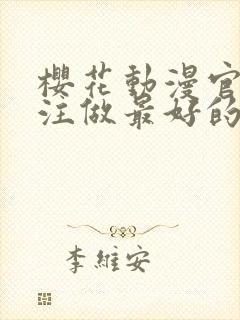 櫻花動漫官
注做最好的
李維安